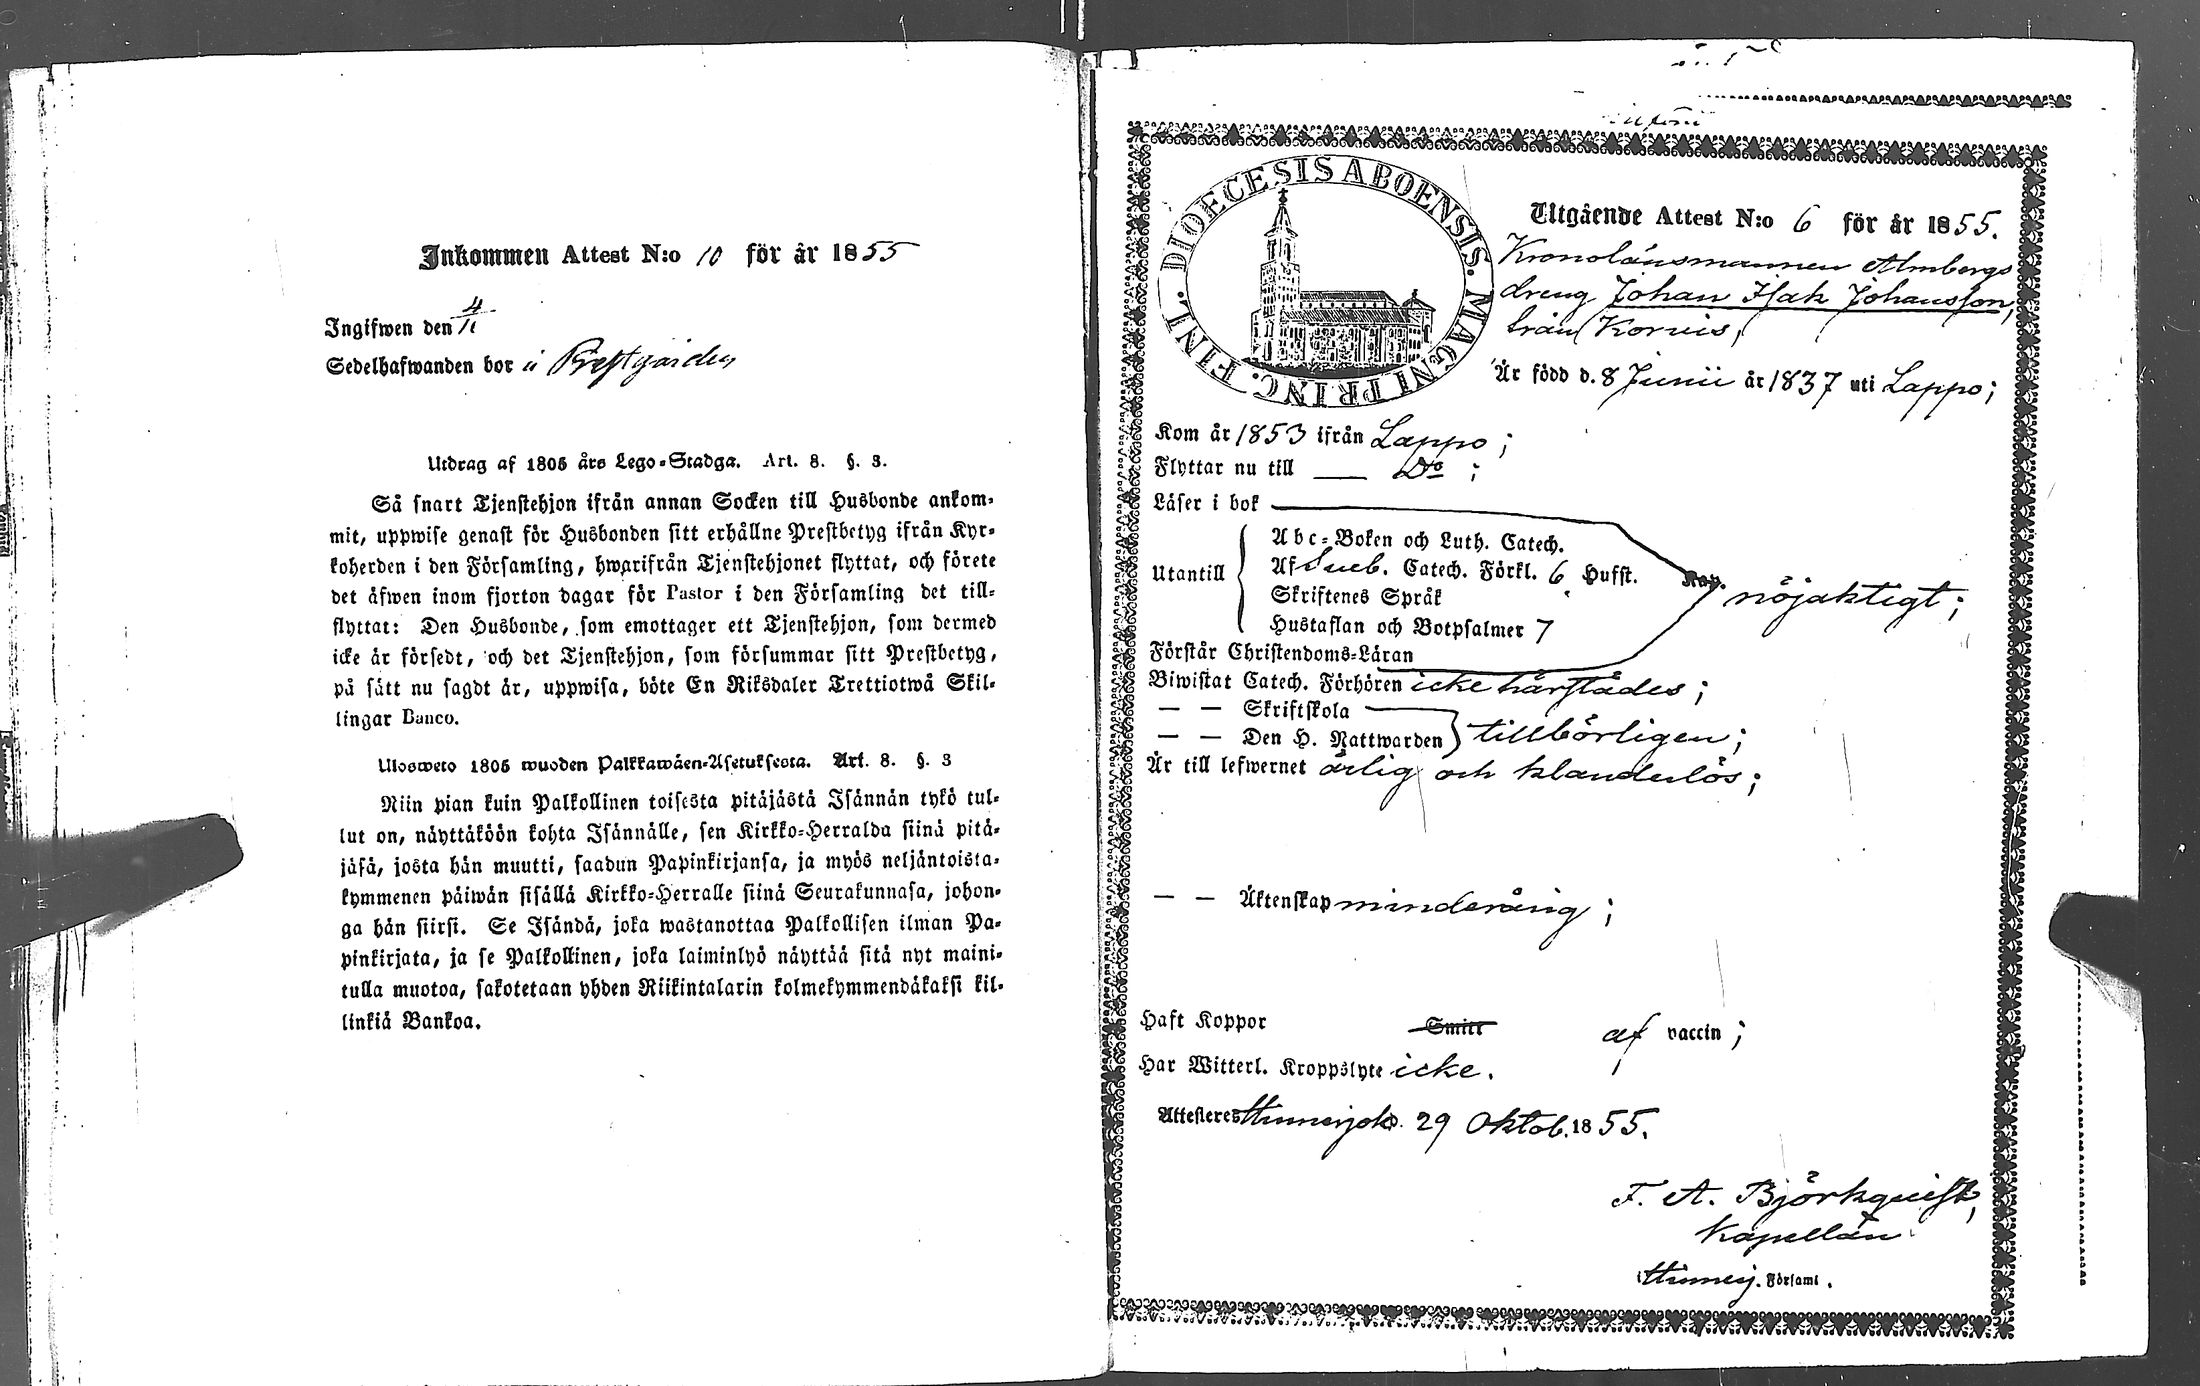 Inkommen Attest N:o 10 för år 1855
Ingifwen den 4/11
Sedelhafwanden bor i Prestgården
Utdrag af 1805 års Lego-Stadga. Art. 8. §. 3.
Så snart Tjenstehjon ifrån annan Socken till Husbonde ankom-
mit, uppwise genast för Husbonden sitt erhållne Prestbetyg ifrån Kyr-
koherden i den Församling, hwarifrån Tjenstehjonet flyttat, och förete
det äfwen inom fjorton dagar för Pastor i den Församling det till-
flyttat: Den Husbonde, som emottager ett Tjenstehjon, som dermed
icke är försedt, och det Tjenstehjon, som försummar sitt Prestbetyg,
på sätt nu sagdt är, uppwisa, böte En Riksdaler Trettiotwå Skil-
lingar Banco.
Ulosweto 1805 wuoden Palkkawäen-Asetuksesta. Art. 8. §. 3
Niin pian kuin Palkollinen toisesta pitäjästä Isännän tykö tul-
lut on, näyttäköön kohta Isännälle, sen Kirkko-Herralda siinä pitä-
jäsä, josta hän muutti, saadun Papinkirjansa, ja myös neljäntoista-
kymmenen päiwän sisällä Kirkko-Herralle siinä Seurakunnasa, johon-
ga hän siirsi. Se Isändä, joka wastanottaa Palkollisen ilman Pa-
pinkirjata, ja se Palkollinen, joka laiminlyö näyttää sitä nyt maini-
tulla muotoa, sakotetaan yhden Riikintalarin kolmekymmendäkaksi kil-
linkiä Bankoa.
DIOECESIS ABOENSIS. MAGNI PRINC. FINL.
Utgående Attest N:o 6 för år 1855.
Kronolänsmannen Almbergs
dreng Johan Isak Johansson,
från Korvis,
Är född d. 8 Junii år 1837 uti Lappo;
Kom år 1853 ifrån Lappo;
Flyttar nu till — Do;
Läser i bok
Abc-Boken och Luth. Catech.
Utantill Af Sveb. Catech. Förkl. 6 Hufst. Kap. nöjaktigt;
Skriftenes Språk
Hustaflan och Botpsalmer 7
Förstår Christendoms-Läran
Biwistat Catech. Förhören icke härstädes;
— — Skriftskola
— — Den H. Nattwarden tillbörligen;
Är till lefwernet ärlig och klanderlös;
— — Äktenskap minderårig;
Haft Koppor Smitt af vaccin;
Har Witterl. Kroppslyte icke.
Attesteres Hinnerjoki d. 29 Oktob. 1855.
F. A. Björkqvist,
Kapellan
i Hinnerj. Församl.